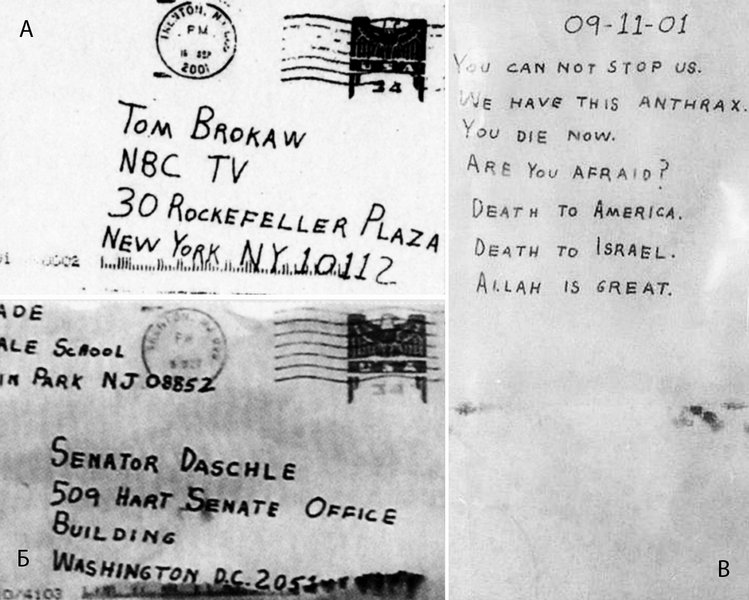 А
TRENTON, NJ
PM
2001
USA
34
TOM BROKAW
NBC TV
30 ROCKEFELLER PLAZA
NEW YORK NY 10112
ADE
ALE SCHOOL
IN PARK NJ 08852
PM
USA
34
SENATOR DASCHLE
509 HART SENATE OFFICE
BUILDING
WASHINGTON D.C. 2051
0/4103
Б
09-11-01
YOU CAN NOT STOP US.
WE HAVE THIS ANTHRAX.
YOU DIE NOW.
ARE YOU AFRAID?
DEATH TO AMERICA.
DEATH TO ISRAEL.
ALLAH IS GREAT.
В